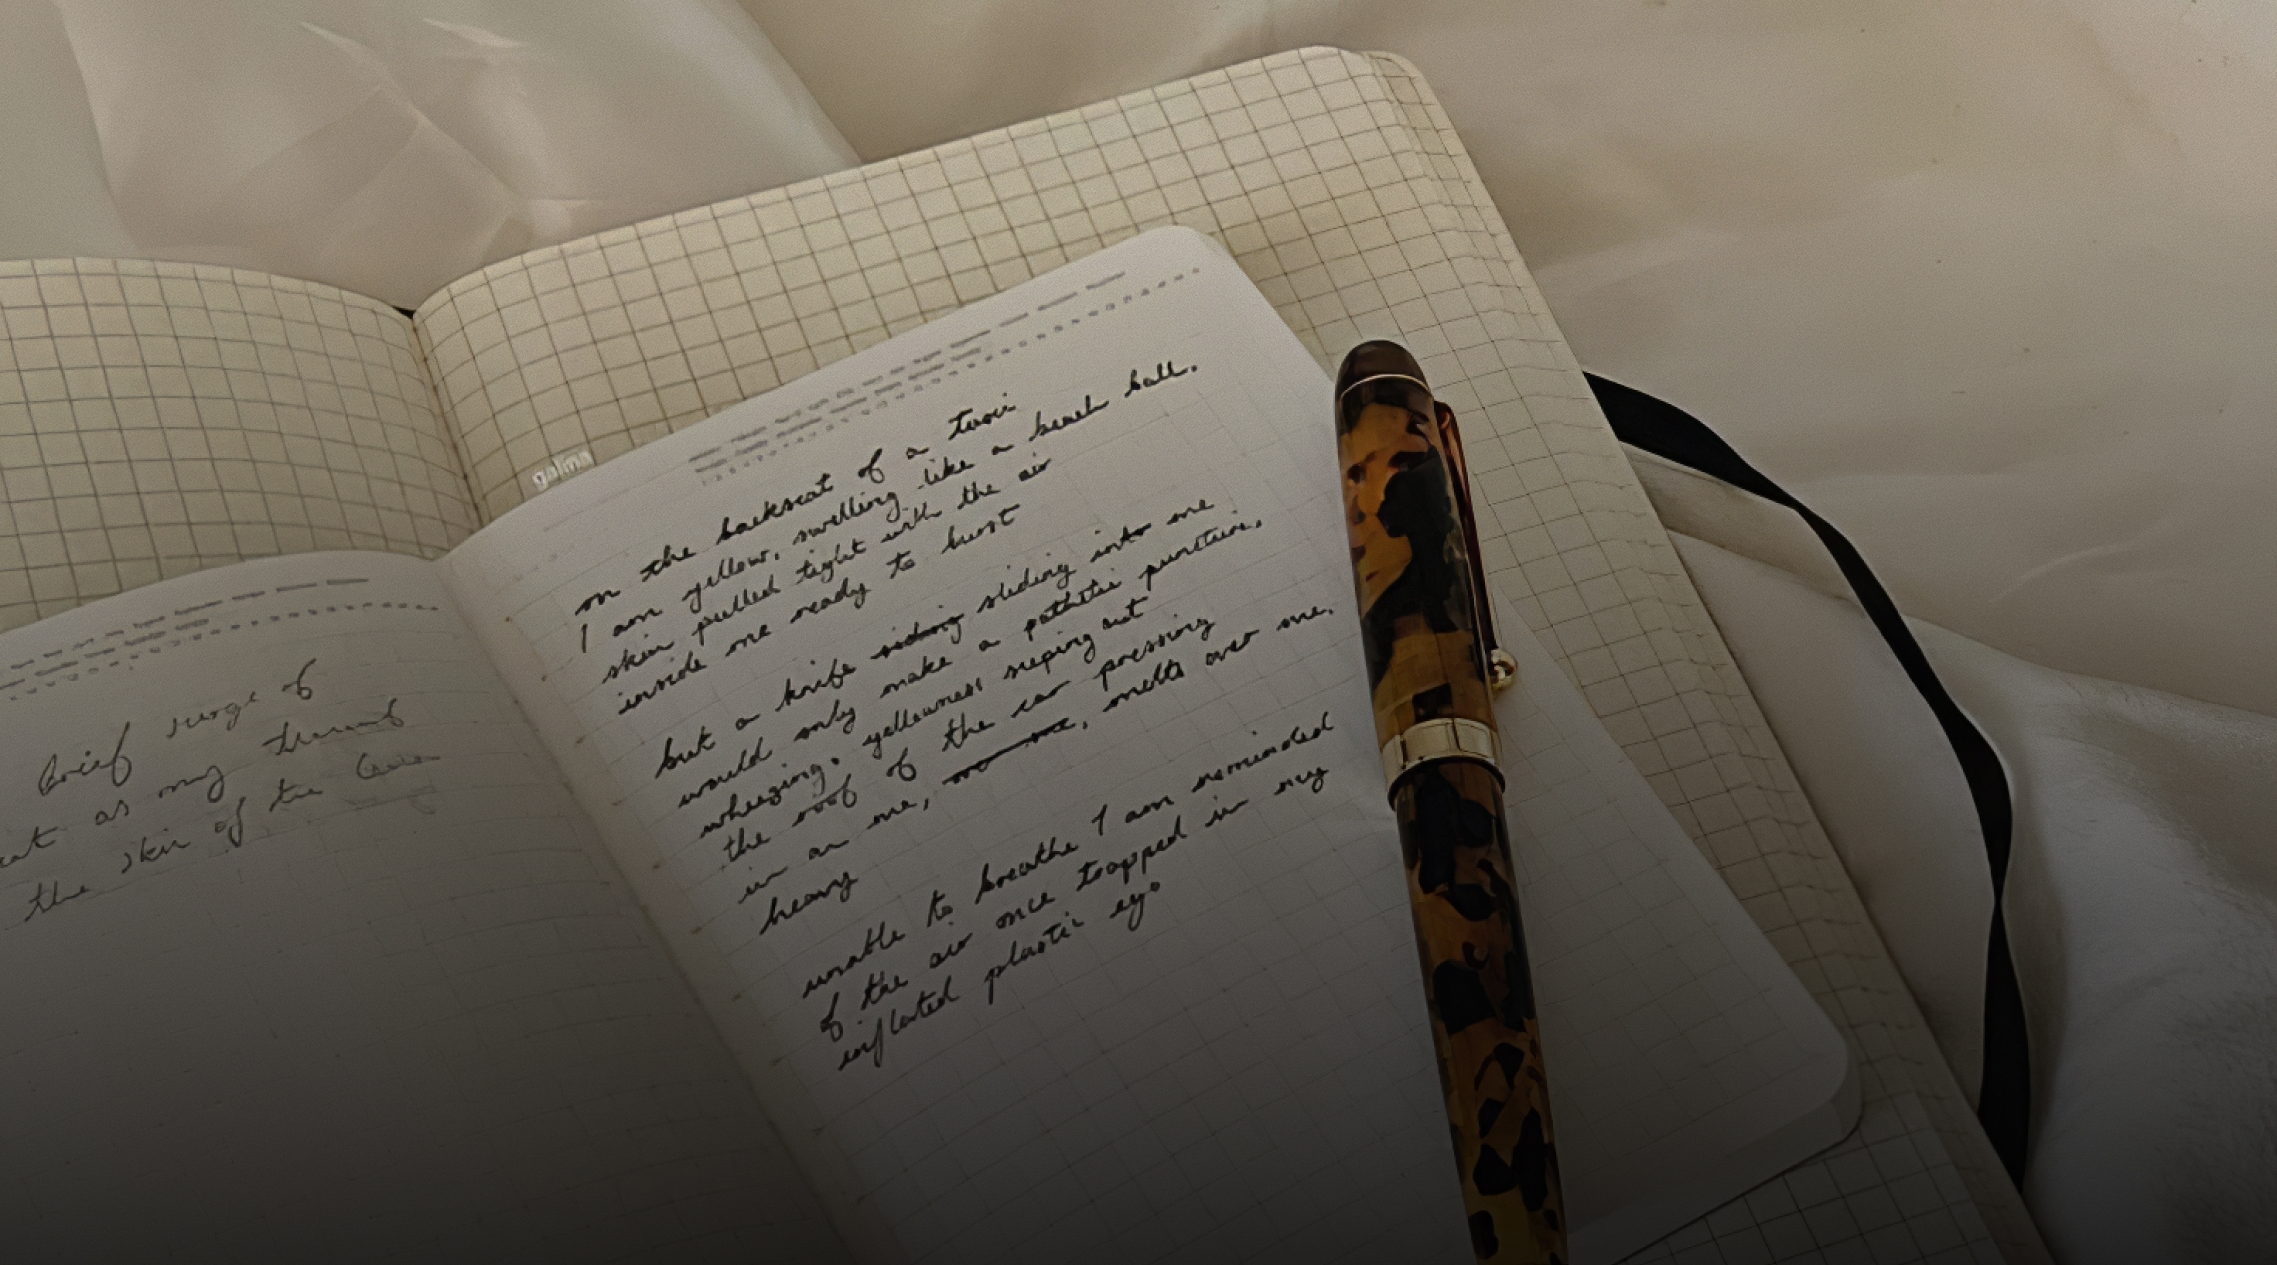 Brief surge of
as my thumb
the skin of the
galma
on the backseat of a taxi
I am yellow, swelling like a beach ball.
skin pulled tight with the air
inside me ready to burst
but a knife riding sliding into me
would only make a pathetic puncture,
wheezing, yellowness seeping out
the roof of the car pressing
in on me, on me, melts over me.
heavy
unable to breathe I am reminded
of the air once trapped in my
inflated plastic ego